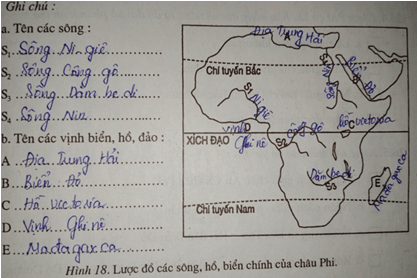 Ghi chú :
a. Tên các sông :
S₁ ..Sông..Ni..giê..........
S₂ Sông..Công..gô.......
S₃ ....Sông..Dăm be di..
S₄ .Sông..Nin............
b. Tên các vịnh biển, hồ, đảo :
A ...Địa..Trung Hải.....
B.....Biển..Đỏ...........
C ...Hồ..vic to ria.......
D ...Vịnh..Ghi nê......
E.....Ma đa gax ca....
Địa Trung Hải
Chí tuyến Bắc
Biển Đỏ
B
S4
Sông Nin
S1
Ni giê
hồ victoria
C
Vịnh D
Ghi nê
XÍCH ĐẠO
Công gô
S2
Dăm be di
S3
E
Ma đa gax ca
Chí tuyến Nam
Hình 18. Lược đồ các sông, hồ, biển chính của châu Phi.